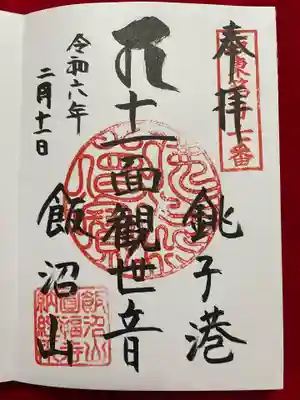 奉拝
坂東第廿七番
銚子港
十一面観世音
飯沼山
令和六年
二月十一日
飯沼山
圓福寺
納経